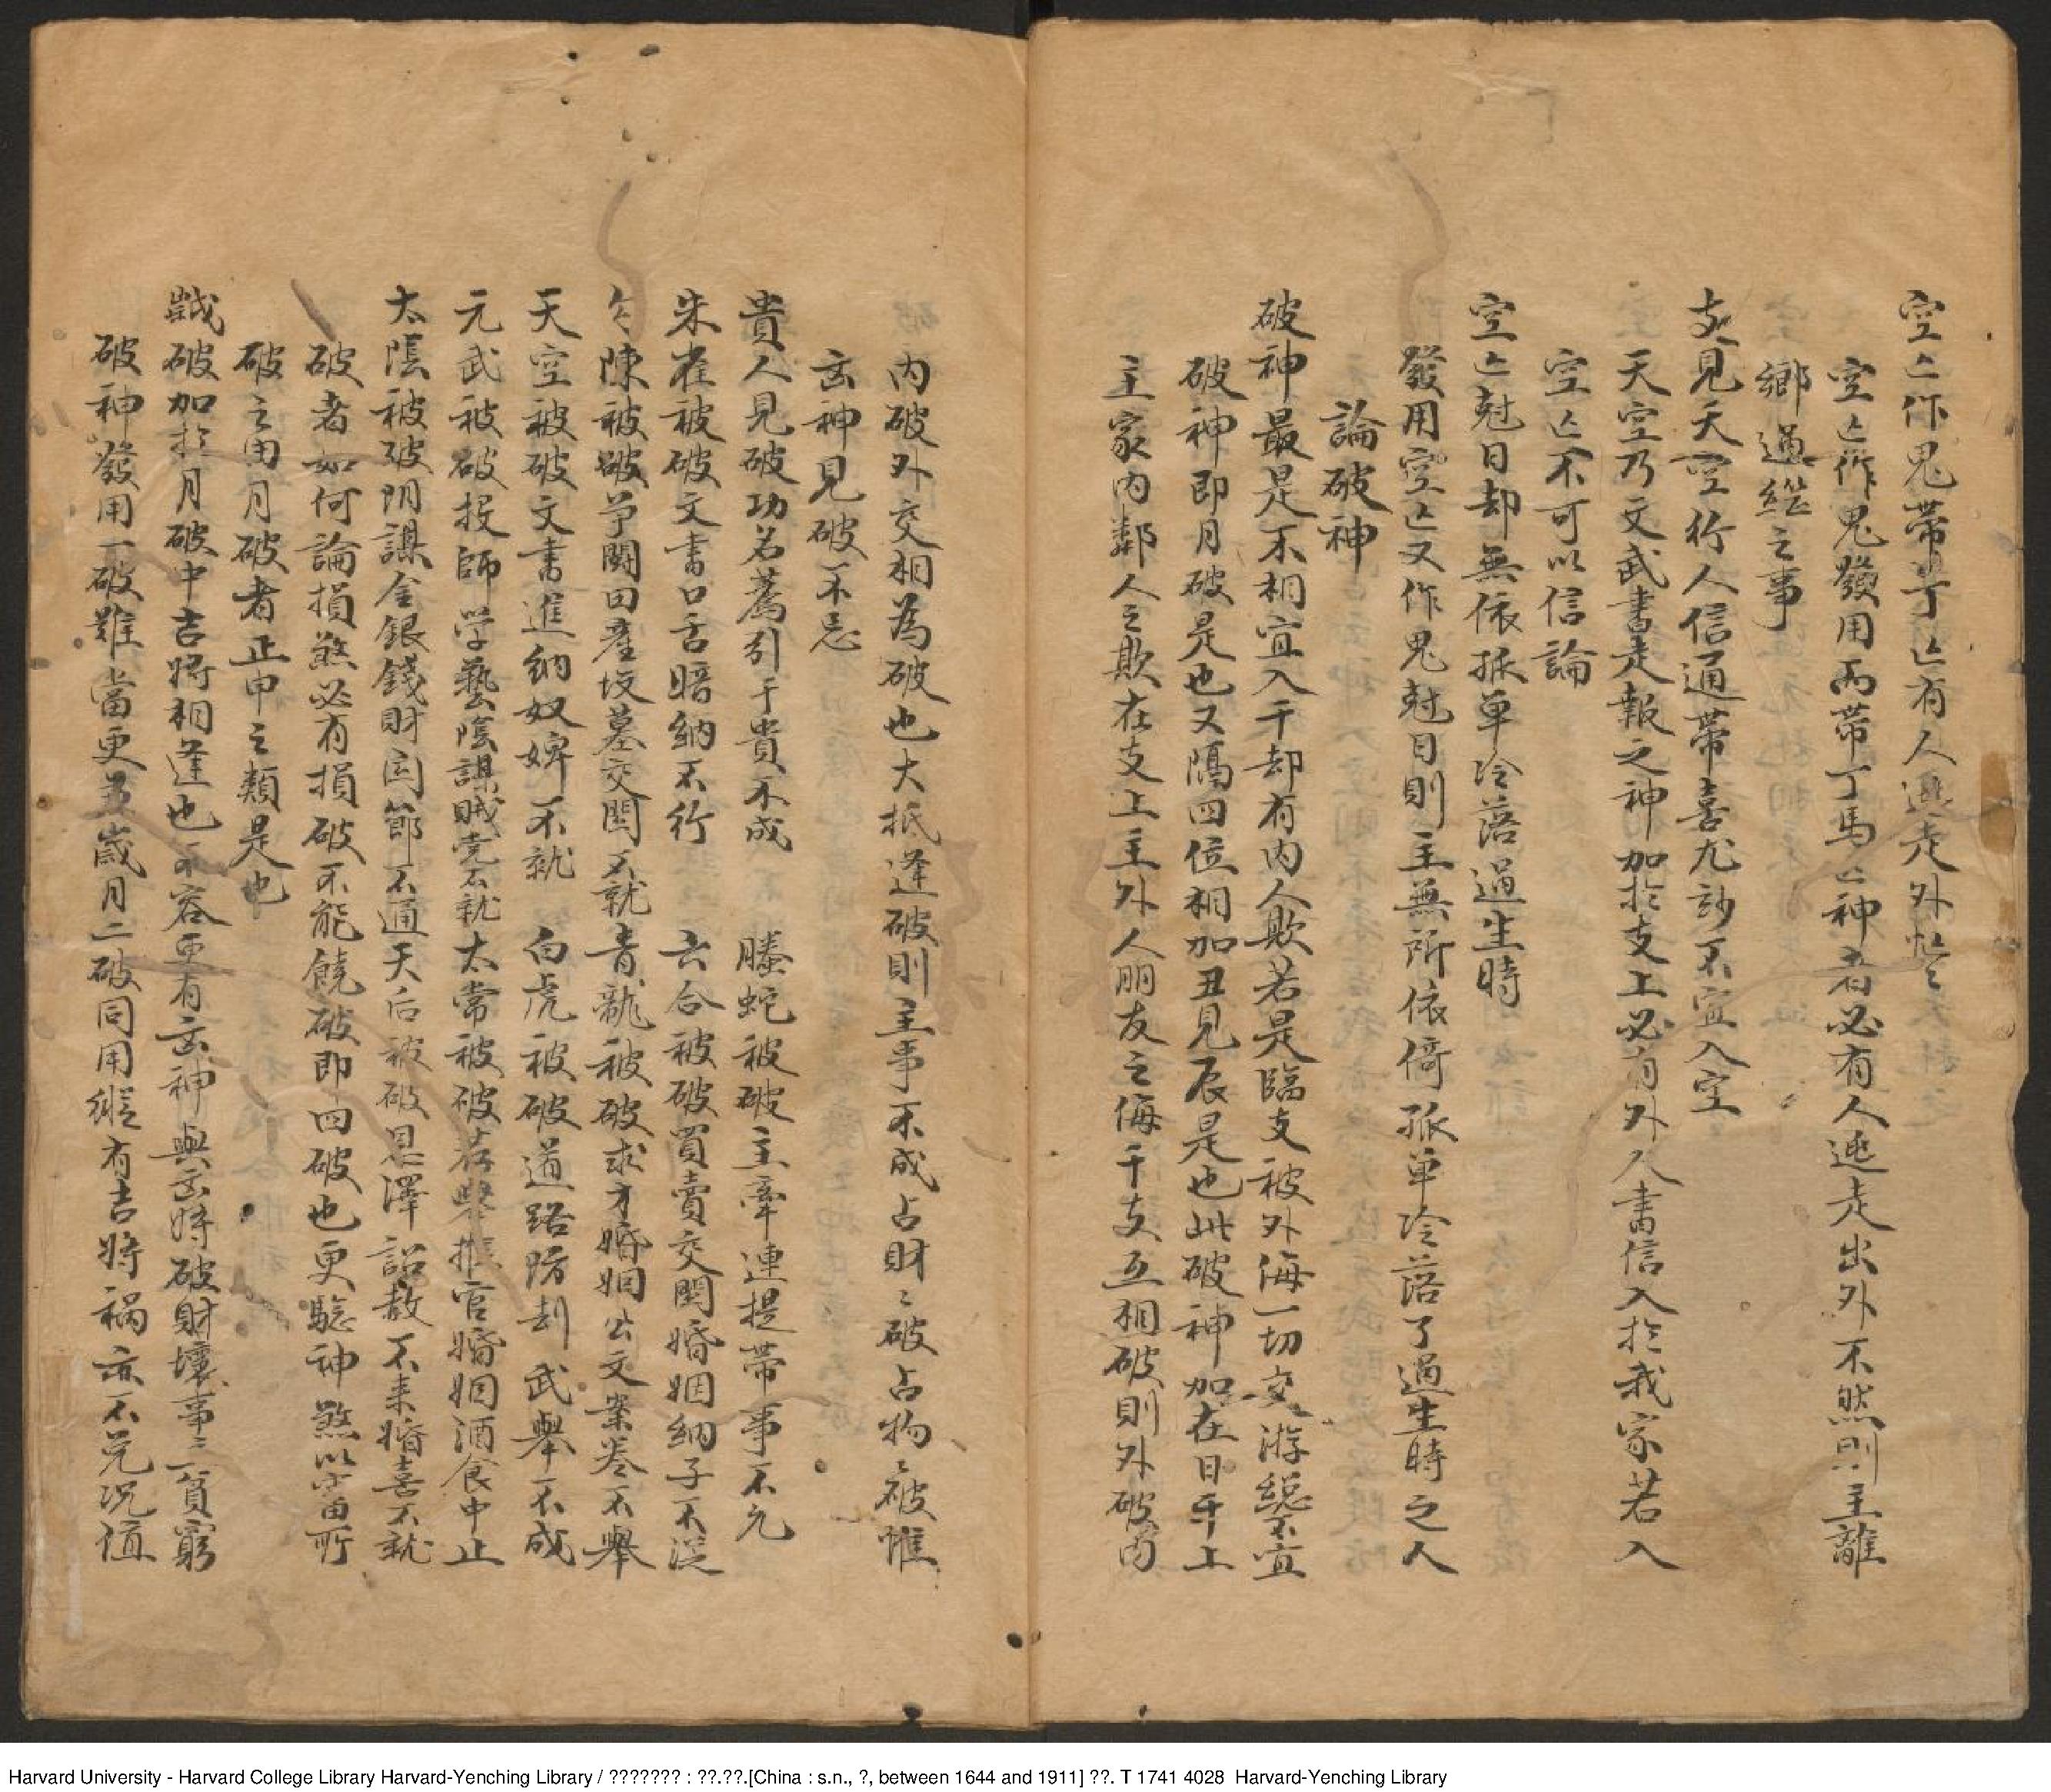 空亡作鬼帶丁亡有人逃走外
空亡作鬼發用而帶丁馬亡神者必有人逃走出外不然則主離
鄉過繼之事
支見天空行人信通帶喜尤妙不宜入空
天空乃文武書走報之神加扵支上必有外人書信入扵我家若入
空亡不可以信論
空亡尅日却無依孤单冷落過生時
發用空亡又作鬼尅日則主無所依倚孤单冷落了過生時之人
論破神
破神最是不相宜入干却有内人欺若是臨支被外侮一切交游緫不宜
破神即月破是也又隔四位相加丑見辰是也此破神加在日干上
主家内鄰人之欺在支上主外人朋友之侮干支互相破則外破内
内破外交相為破也大抵逢破則主事不成占財〻破占物〻破惟
㐫神見破不忌
貴人見破功名薦引干貴不成 螣蛇被破主牽連提帶事不允
朱雀被破文書口舌暗納不行 六合被破買賣交関婚姻納子不從
勾陳被破爭闘田產坟墓交関不就 青龍被破求才婚姻公文案卷不舉
天空被破文書進納奴婢不就 白虎被破道路防刦武舉不成
元武被破投師学藝陰謀賊党不就 太常被破荐舉推官婚姻酒食中止
太陰被破阴謀金銀錢財関節不通 天后被破恩澤詔赦不来婚喜不就
破者如何論損煞必有損破不能饒破即四破也更騐神煞以當所
破之由月破者正申之類是也
歲破加扵月破中吉將相逢也不容更有㐫神與㐫將破財壞事二貧窮
破神發用一破難當更並歲月二破同用縱有吉將禍亦不免况值
Harvard University - Harvard College Library Harvard-Yenching Library / ??????? : ??.??.[China : s.n., ?, between 1644 and 1911] ??. T 1741 4028 Harvard-Yenching Library